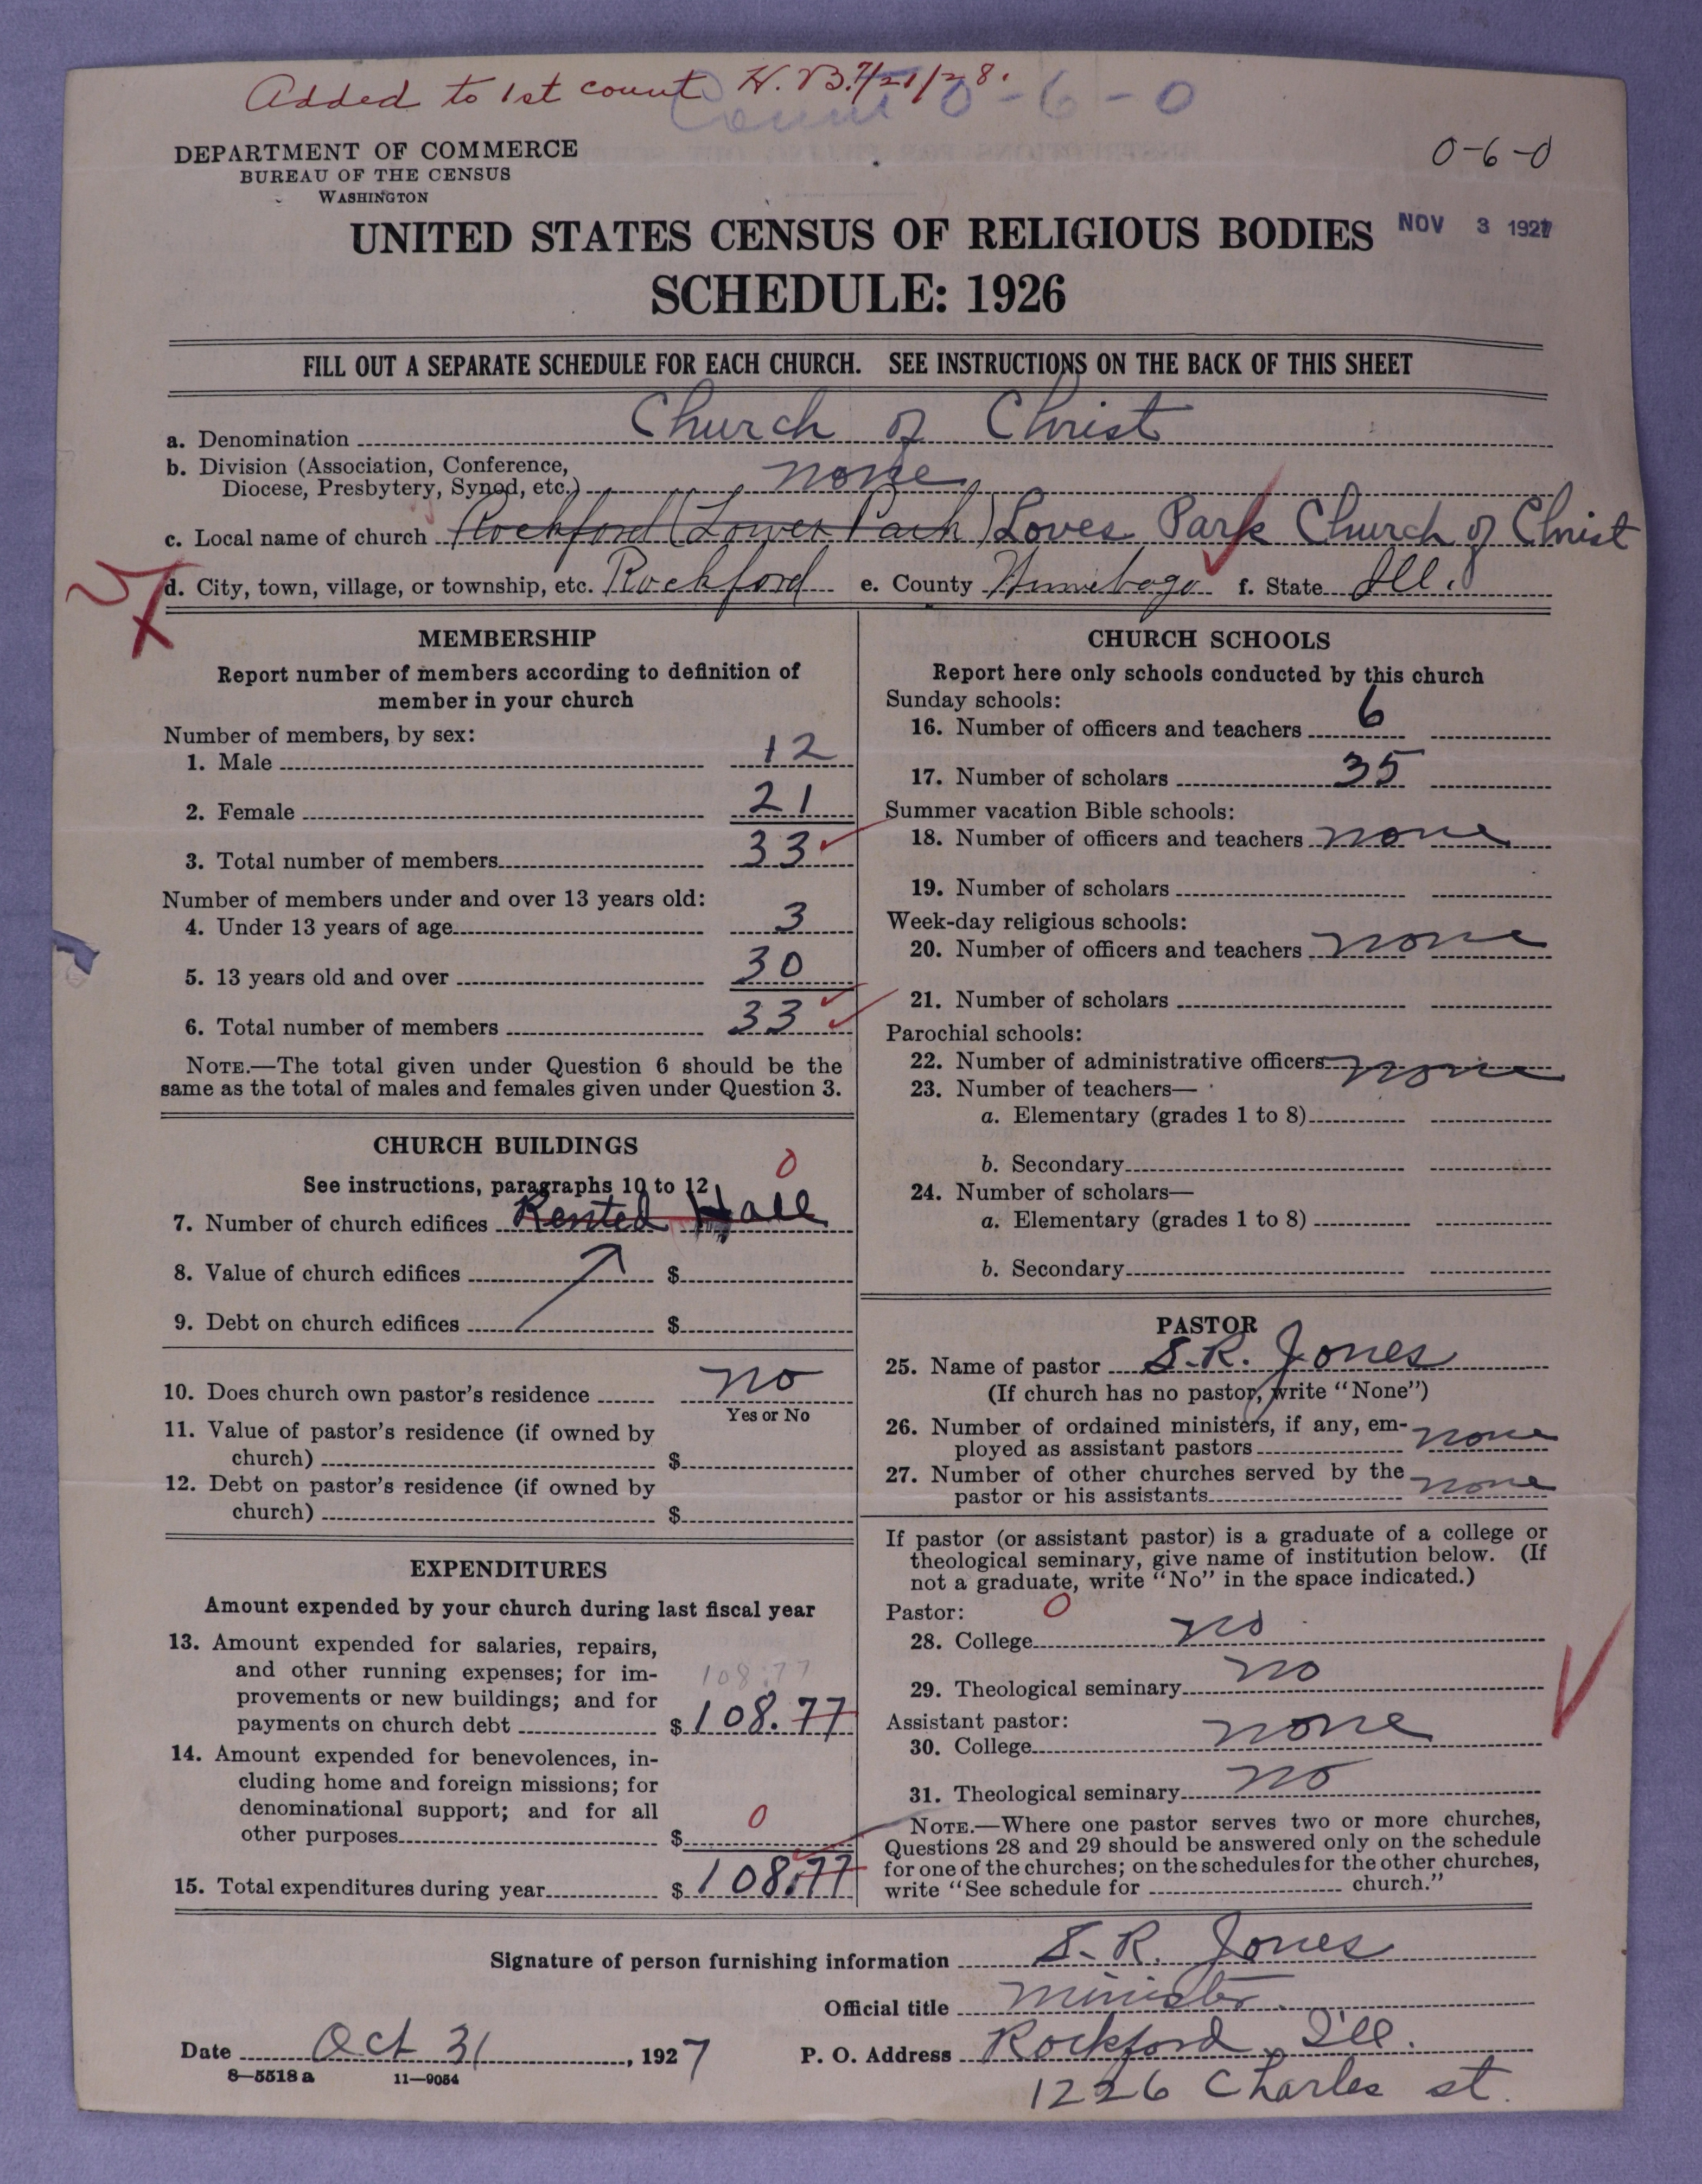 Added to 1st count H. B. 7/21/28.
Count 0-6-0
DEPARTMENT OF COMMERCE
BUREAU OF THE CENSUS
WASHINGTON
0-6-0
UNITED STATES CENSUS OF RELIGIOUS BODIES
NOV 3 1927
SCHEDULE: 1926
FILL OUT A SEPARATE SCHEDULE FOR EACH CHURCH. SEE INSTRUCTIONS ON THE BACK OF THIS SHEET
a. Denomination Church of Christ
b. Division (Association, Conference,
Diocese, Presbytery, Synod, etc.) none
c. Local name of church Rockford (Lower Park) Loves Park Church of Christ
d. City, town, village, or township, etc. Rockford e. County Winnebago f. State Ill.
MEMBERSHIP
Report number of members according to definition of
member in your church
Number of members, by sex:
1. Male 12
2. Female 21
3. Total number of members 33
Number of members under and over 13 years old:
4. Under 13 years of age 3
5. 13 years old and over 30
6. Total number of members 33
NOTE.—The total given under Question 6 should be the
same as the total of males and females given under Question 3.
CHURCH BUILDINGS
0
See instructions, paragraphs 10 to 12
7. Number of church edifices Rented Hall
8. Value of church edifices $
9. Debt on church edifices $
10. Does church own pastor's residence no
Yes or No
11. Value of pastor's residence (if owned by
church) $
12. Debt on pastor's residence (if owned by
church) $
EXPENDITURES
Amount expended by your church during last fiscal year
13. Amount expended for salaries, repairs,
and other running expenses; for im-
108.77
provements or new buildings; and for
payments on church debt $ 108.77
14. Amount expended for benevolences, in-
cluding home and foreign missions; for
denominational support; and for all
0
other purposes $
15. Total expenditures during year $ 108.77
CHURCH SCHOOLS
Report here only schools conducted by this church
Sunday schools:
16. Number of officers and teachers 6
17. Number of scholars 35
Summer vacation Bible schools:
18. Number of officers and teachers none
19. Number of scholars
Week-day religious schools:
20. Number of officers and teachers none
21. Number of scholars
Parochial schools:
22. Number of administrative officers none
23. Number of teachers—
a. Elementary (grades 1 to 8)
b. Secondary
24. Number of scholars—
a. Elementary (grades 1 to 8)
b. Secondary
PASTOR
25. Name of pastor S. R. Jones
(If church has no pastor, write "None")
26. Number of ordained ministers, if any, em-
ployed as assistant pastors none
27. Number of other churches served by the
pastor or his assistants none
If pastor (or assistant pastor) is a graduate of a college or
theological seminary, give name of institution below. (If
not a graduate, write "No" in the space indicated.)
Pastor: 0
28. College no
29. Theological seminary no
Assistant pastor:
30. College none
31. Theological seminary no
NOTE.—Where one pastor serves two or more churches,
Questions 28 and 29 should be answered only on the schedule
for one of the churches; on the schedules for the other churches,
write "See schedule for church."
Signature of person furnishing information S. R. Jones
Official title minister
Date Oct 31, 1927 P. O. Address Rockford, Ill.
8—5518 a 11—9054
1226 Charles st.